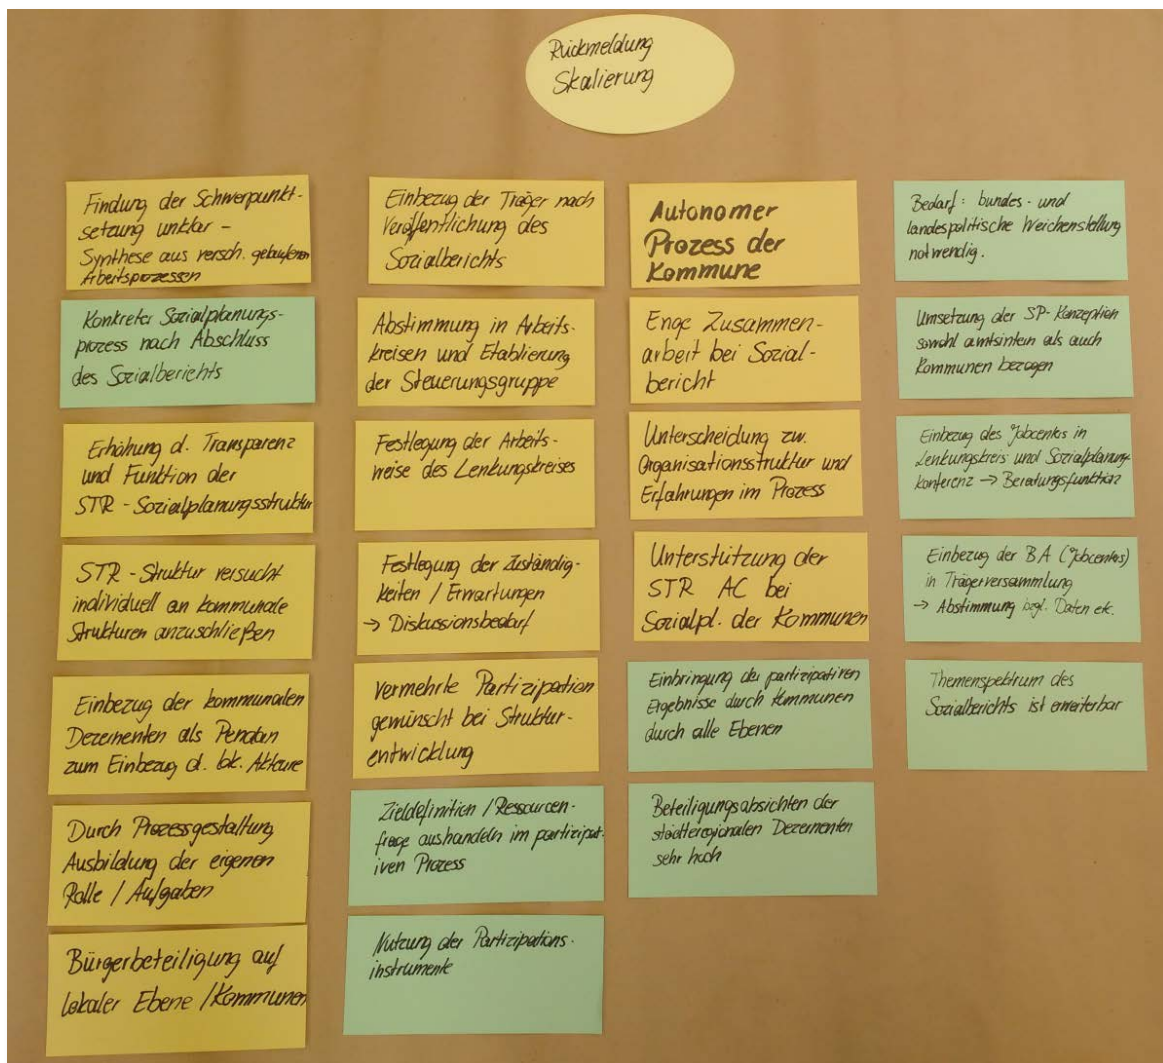 Rückmeldung
Skalierung
Findung der Schwerpunkt-
setzung unklar -
Synthese aus versch. gelaufenen
Arbeitsprozessen
Konkreter Sozialplanungs-
prozess nach Abschluss
des Sozialberichts
Erhöhung d. Transparenz
und Funktion der
STR - Sozialplanungsstruktur
STR - Struktur versucht
individuell an kommunale
Strukturen anzuschließen
Einbezug der kommunalen
Dezernenten als Pendan
zum Einbezug d. lok. Akteure
Durch Prozessgestaltung
Ausbildung der eigenen
Rolle / Aufgaben
Bürgerbeteiligung auf
lokaler Ebene / Kommunen
Einbezug der Träger nach
Veröffentlichung des
Sozialberichts
Abstimmung in Arbeits-
kreisen und Etablierung
der Steuerungsgruppe
Festlegung der Arbeits-
weise des Lenkungskreises
Festlegung der Zuständig-
keiten / Erwartungen
→ Diskussionsbedarf
Vermehrte Partizipation
gewünscht bei Struktur-
entwicklung
Zieldefinition / Ressourcen-
frage aushandeln im partizipat-
iven Prozess
Nutzung der Partizipations-
instrumente
Autonomer
Prozess der
Kommune
Enge Zusammen-
arbeit bei Sozial-
bericht
Unterscheidung zw.
Organisationsstruktur und
Erfahrungen im Prozess
Unterstützung der
STR AC bei
Sozialpl. der Kommunen
Einbringung der partizipativen
Ergebnisse durch Kommunen
durch alle Ebenen
Beteiligungsabsichten der
städteregionalen Dezernenten
sehr hoch
Bedarf: bundes- und
landespolitische Weichenstellung
notwendig.
Umsetzung der SP-Konzeption
sowohl amtsintern als auch
Kommunen bezogen
Einbezug des Jobcenters in
Lenkungskreis und Sozialplanung-
konferenz → Beratungsfunktion
Einbezug der BA (Jobcenters)
in Trägerversammlung
→ Abstimmung bzgl. Daten etc.
Themenspektrum des
Sozialberichts ist erweiterbar